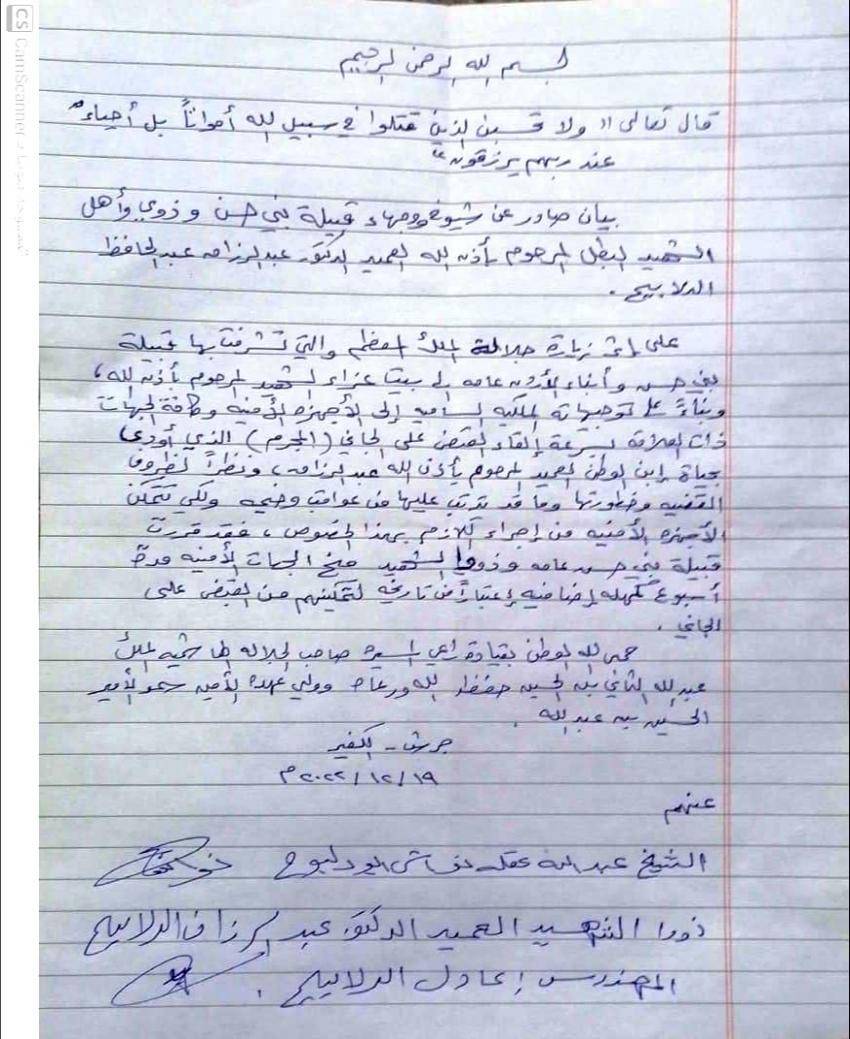 بسم الله الرحمن الرحيم
قال تعالى " ولا تحسبن الذين قتلوا في سبيل الله أمواتاً بل أحياء
عند ربهم يرزقون "
بيان صادر عن شيوخ ووجهاء قبيلة بني حسن و ذوي وأهل
الشهيد البطل المرحوم بأذن الله العميد الدكتور عبدالرزاق عبدالحافظ
الدلابيح .
على إثر زيارة جلالة الملك المعظم والتي تشرفت بها قبيلة
بني حسن وأبناء الأردن عامه إلى بيت عزاء الشهيد المرحوم بأذن الله ،
وبناءً على توجيهاته الملكيه الساميه إلى الأجهزه الأمنيه وكافة الجهات
ذات العلاقة بسرعة إلقاء القبض على الجاني (المجرم) الذي أودى
بحياة إبن الوطن العميد المرحوم بأذن الله عبدالرزاق ، ونظراً لظروف
القضيه وخطورتها وما قد يترتب عليها من عواقب وخيمه ولكي تتمكن
الأجهزه الأمنيه من إجراء اللازم بهذا الخصوص ، فقد قررت
قبيلة بني حسن عامه و ذووا الشهيد منح الجهات الأمنيه مدة
أسبوع كمهله إضافيه إعتباراً من تاريخه لتمكينهم من القبض على
الجاني .
حمى الله الوطن بقيادة راعي المسيره صاحب الجلاله الهاشميه الملك
عبدالله الثاني بن الحسين حفظه الله ورعاه وولي عهده الأمين سمو الأمير
الحسين بن عبدالله .
جرش - الكفير
١٩ / ١٢ / ٢٠٢٢ م
عنهم
الشيخ عبدالله عقله ابو دلبوح
ذووا الشهيد العميد الدكتور عبدالرزاق الدلابيح
المهندس عادل الدلابيح .
CS CamScanner